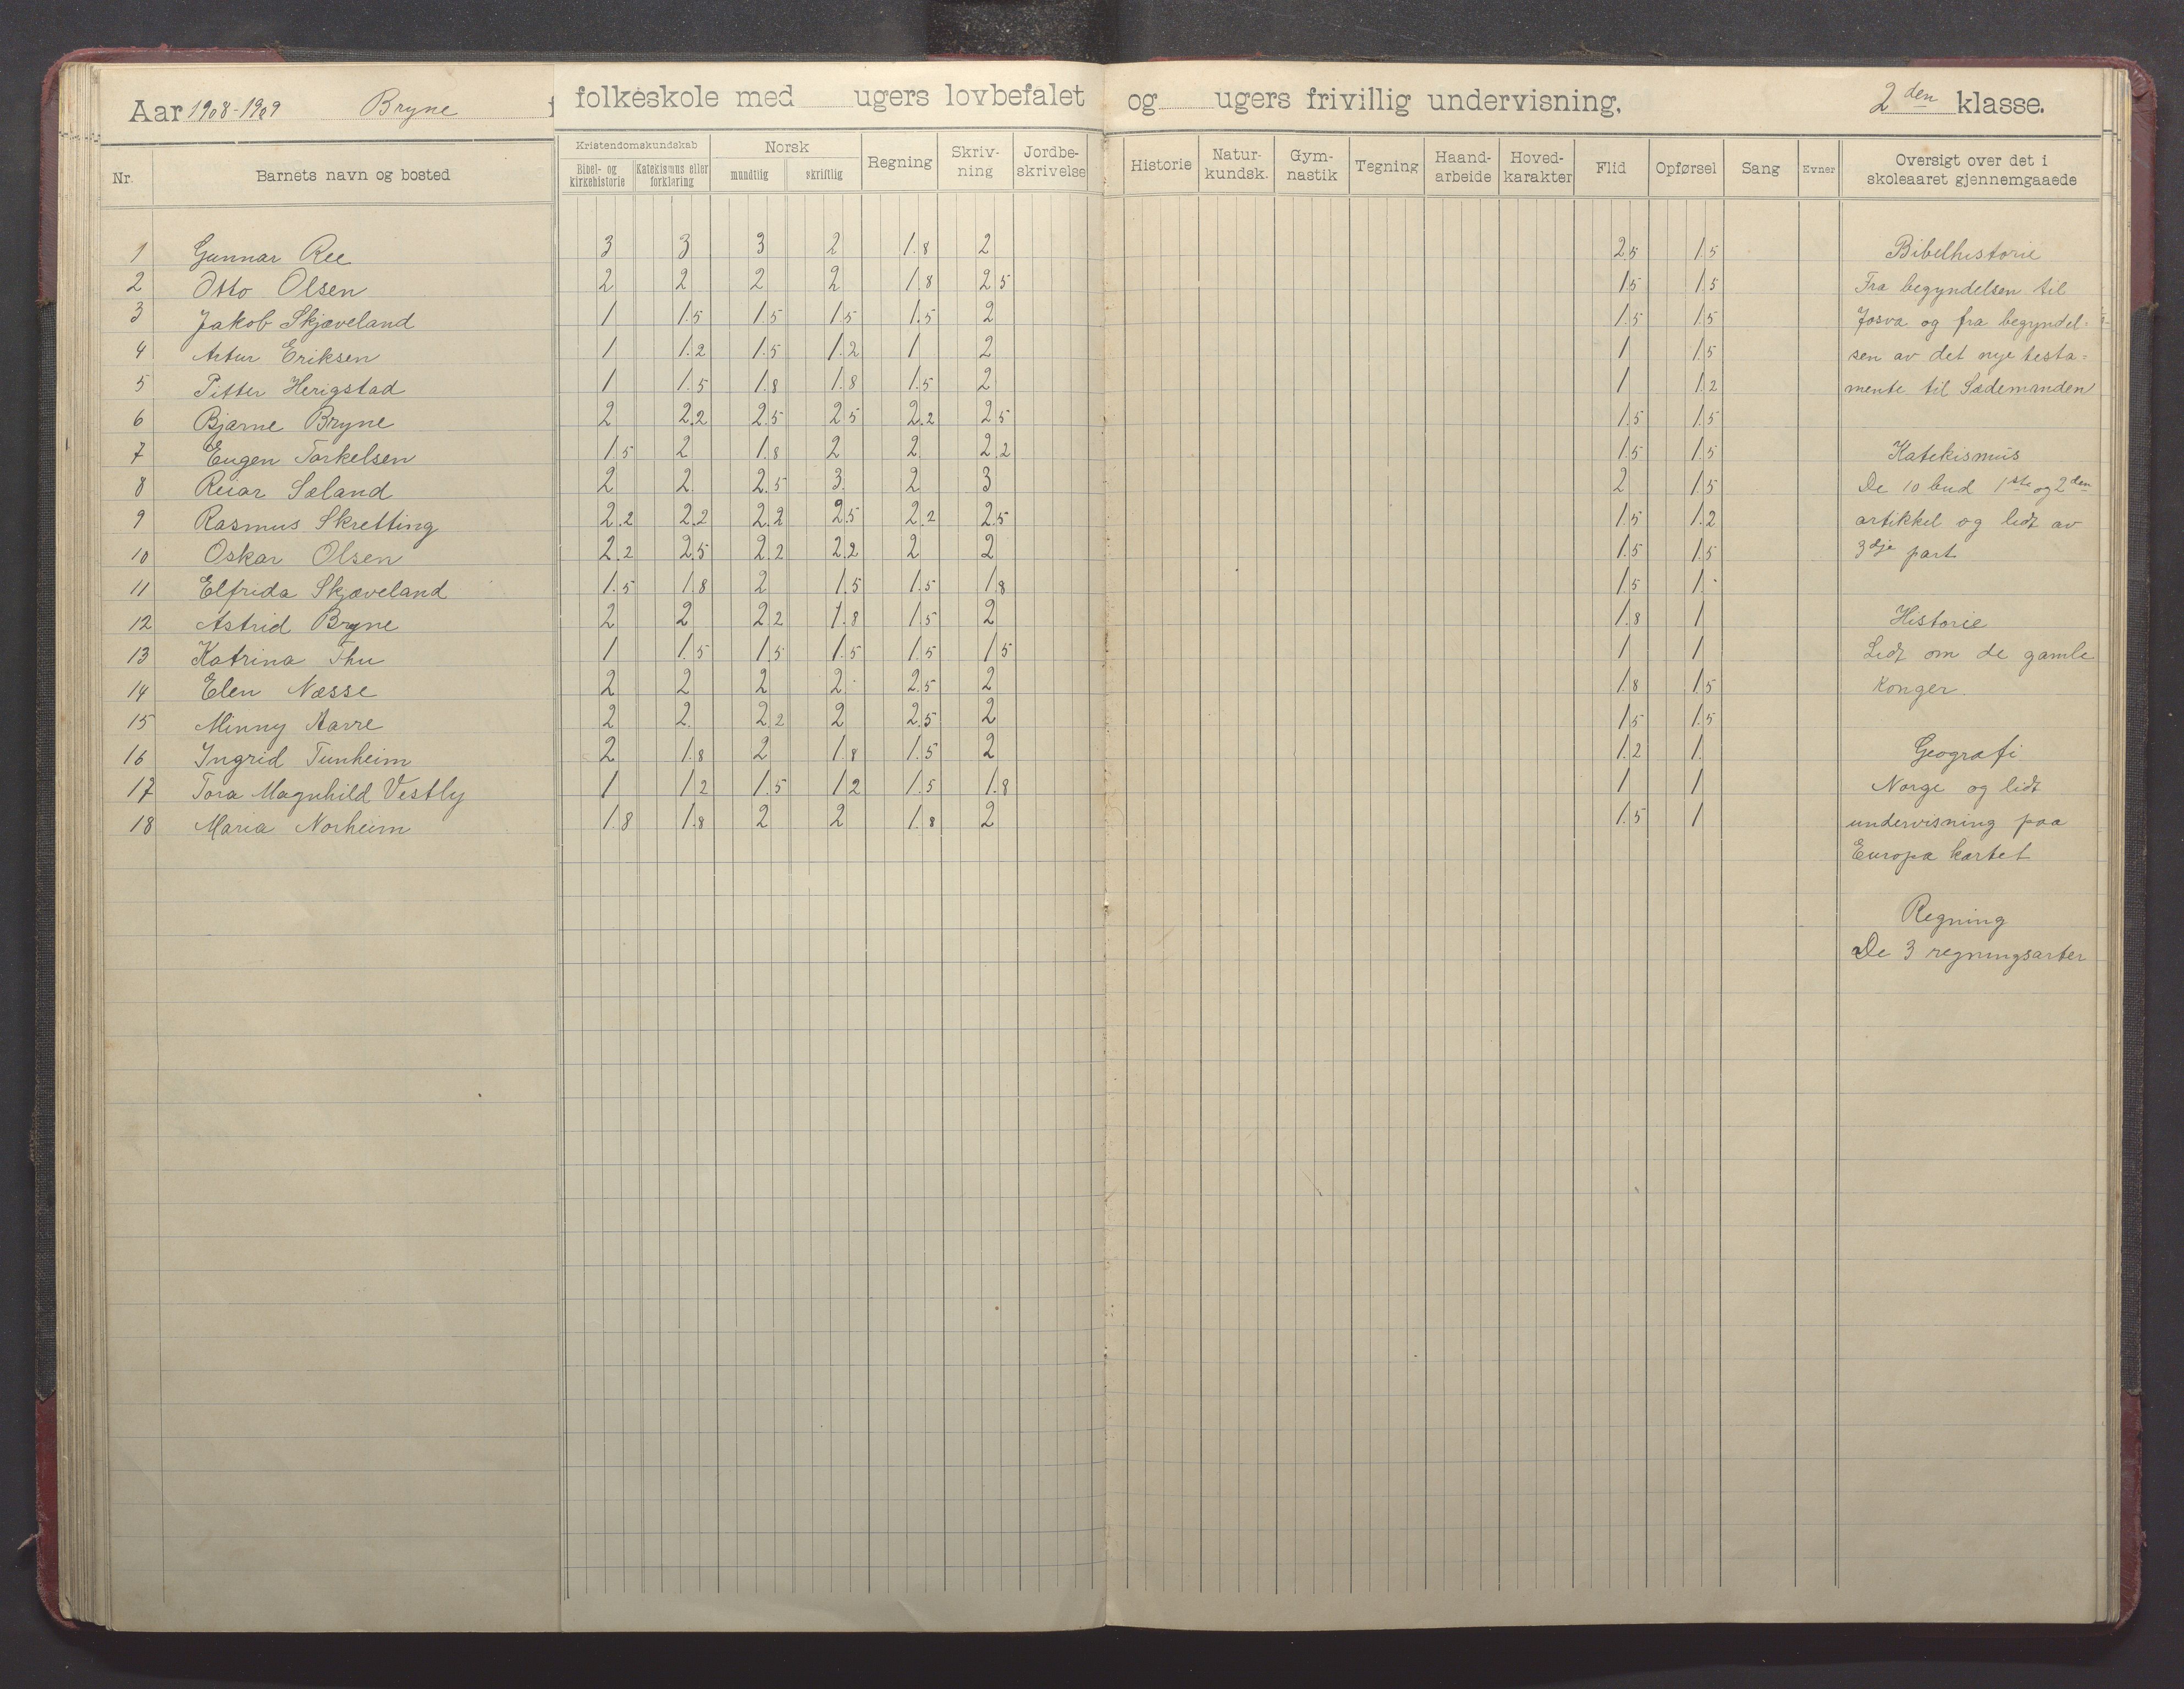 Aar 1908-1909 Bryne folkeskole med ugers lovbefalet og ugers frivillig undervisning, 2den klasse.
Nr. Barnets navn og bosted Kristendomskundskab Bibel- og kirkehistorie Katekismus eller forklaring Norsk mundtlig skriftlig Regning Skriv-ning Jordbe-skrivelse Historie Natur-kundsk. Gym-nastik Tegning Haand-arbeide Hoved-karakter Flid Opførsel Sang Evner Oversigt over det i skoleaaret gjennemgaaede
1 Gunnar Ree 3 3 3 2 1.8 2 2.5 1.5
2 Otto Olsen 2 2 2 2 1.8 2.5 1.5 1.5
3 Jakob Skjæveland 1 1.5 1.5 1.5 1.5 2 1.5 1.5
4 Artur Eriksen 1 1.2 1.5 1.2 1 2 1 1.5
5 Pitter Herigstad 1 1.5 1.8 1.8 1.5 2 1 1.2
6 Bjarne Bryne 2 2.2 2.5 2.5 2.2 2.5 1.5 1.5
7 Eugen Torkelsen 1.5 2 1.8 2 2 2.2 1.5 1.5
8 Reiar Sæland 2 2 2.5 3 2 3 2 1.5
9 Rasmus Skretting 2.2 2.2 2.2 2.5 2.2 2.5 1.5 1.2
10 Oskar Olsen 2.2 2.5 2.2 2.2 2 2 1.5 1.5
11 Elfrida Skjæveland 1.5 1.8 2 1.5 1.5 1.8 1.5 1
12 Astrid Bryne 2 2 2.2 1.8 1.5 2 1.8 1
13 Katrina Thu 1 1.5 1.5 1.5 1.5 1.5 1 1
14 Elen Næsse 2 2 2 2 2.5 2 1.8 1.5
15 Minny Aarre 2 2 2.2 2 2.5 2 1.5 1.5
16 Ingrid Tunheim 2 1.8 2 1.8 1.5 2 1.2 1
17 Tora Magnhild Vestly 1 1.2 1.5 1.2 1.5 1.8 1 1
18 Maria Norheim 1.8 1.8 2 2 1.8 2 1.5 1
Bibelhistorie
Fra begyndelsen til
Josva og fra begyndel=
sen av det nye testa=
mente til Sædemanden
Katekismus
De 10 bud 1ste og 2den
artikkel og lidt av
3dje part
Historie
Lidt om de gamle
konger.
Geografi
Norge og lidt
undervisning paa
Europa kartet
Regning
De 3 regningsarter